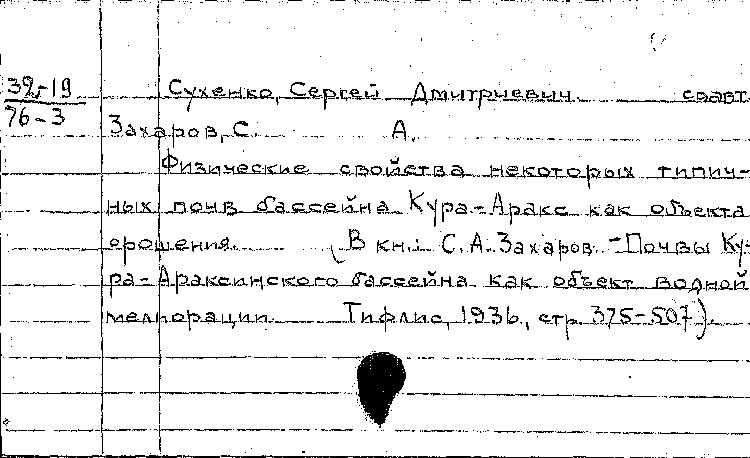 39-19
76-3
Сухенко, Сергей Дмитриевич соавт.
Захаров, С. А.
Физические свойства некоторых типич-
ных почв бассейна Кура-Аракс как объекта
орошения. (В кн.: С.А. Захаров - Почвы Ку-
ра-Араксинского бассейна как объект водной
мелиорации. Тифлис, 1936, стр. 375-507).